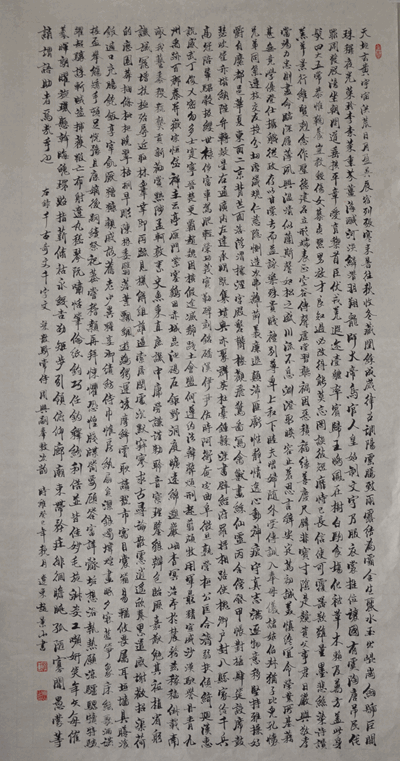 天地玄黃宇宙洪荒日月盈昃辰宿列張寒來暑往秋收冬藏閏餘成歲律呂調陽雲騰致雨露結為霜金生麗水玉出崑岡劍號巨闕
珠稱夜光果珍李柰菜重芥薑海鹹河淡鱗潛羽翔龍師火帝鳥官人皇始制文字乃服衣裳推位讓國有虞陶唐弔民伐
罪周發殷湯坐朝問道垂拱平章愛育黎首臣伏戎羌遐邇壹體率賓歸王鳴鳳在樹白駒食場化被草木賴及萬方蓋此身
髮四大五常恭惟鞠養豈敢毀傷女慕貞絜男效才良知過必改得能莫忘罔談彼短靡恃己長信使可覆器欲難量墨悲絲染詩讚
羔羊景行維賢剋念作聖德建名立形端表正空谷傳聲虛堂習聽禍因惡積福緣善慶尺璧非寶寸陰是競資父事君曰嚴與敬孝
當竭力忠則盡命臨深履薄夙興溫凊似蘭斯馨如松之盛川流不息淵澄取映容止若思言辭安定篤初誠美慎終宜令榮業所基籍
甚無竟學優登仕攝職從政存以甘棠去而益詠樂殊貴賤禮別尊卑上和下睦夫唱婦隨外受傅訓入奉母儀諸姑伯叔猶子比兒孔懷
兄弟同氣連枝交友投分切磨箴規仁慈隱惻造次弗離節義廉退顛沛匪虧性靜情逸心動神疲守真志滿逐物意移堅持雅操好
爵自縻都邑華夏東西二京背邙面洛浮渭據涇宮殿盤鬱樓觀飛驚圖寫禽獸畫彩仙靈丙舍傍啟甲帳對楹肆筵設席鼓
瑟吹笙升階納陛弁轉疑星右通廣內左達承明既集墳典亦聚群英杜稿鍾隸漆書壁經府羅將相路俠槐卿戶封八縣家給千兵
高冠陪輦驅轂振纓世祿侈富車駕肥輕策功茂實勒碑刻銘磻溪伊尹佐時阿衡奄宅曲阜微旦孰營桓公匡合濟弱扶傾綺迴漢惠
說感武丁俊乂密勿多士寔寧晉楚更霸趙魏困橫假途滅虢踐土會盟何遵約法韓弊煩刑起翦頗牧用軍最精宣威沙漠馳譽丹青九
州禹跡百郡秦并嶽宗恒岱禪主云亭雁門紫塞雞田赤城昆池碣石鉅野洞庭曠遠綿邈巖岫杳冥治本於農務茲稼穡俶載南
畝我藝黍稷稅熟貢新勸賞黜陟孟軻敦素史魚秉直庶幾中庸勞謙謹敕聆音察理鑑貌辨色貽厥嘉猷勉其祗植省躬
譏誡寵增抗極殆辱近恥林皋幸即兩疏見機解組誰逼索居閒處沉默寂寥求古尋論散慮逍遙欣奏累遣慼謝歡招渠荷
的歷園莽抽條枇杷晚翠梧桐早凋陳根委翳落葉飄颻遊鵾獨運凌摩絳霄耽讀翫市寓目囊箱易輶攸畏屬耳垣牆具膳湌
飯適口充腸飽飫烹宰飢厭糟糠親戚故舊老少異糧妾御績紡侍巾帷房紈扇圓潔銀燭煒煌晝眠夕寐藍筍象床弦歌酒讌
接杯舉觴矯手頓足悅豫且康嫡後嗣續祭祀蒸嘗稽顙再拜悚懼恐惶牋牒簡要顧答審詳骸垢想浴執熱願涼驢騾犢特駭
躍超驤誅斬賊盜捕獲叛亡布射遼丸嵇琴阮嘯恬筆倫紙鈞巧任釣釋紛利俗並皆佳妙毛施淑姿工顰妍笑年矢每催
曦暉朗曜璇璣懸斡晦魄環照指薪修祜永綏吉劭矩步引領俯仰廊廟束帶矜莊徘徊瞻眺孤陋寡聞愚蒙等
誚謂語助者焉哉乎也 右錄千古奇文千字文